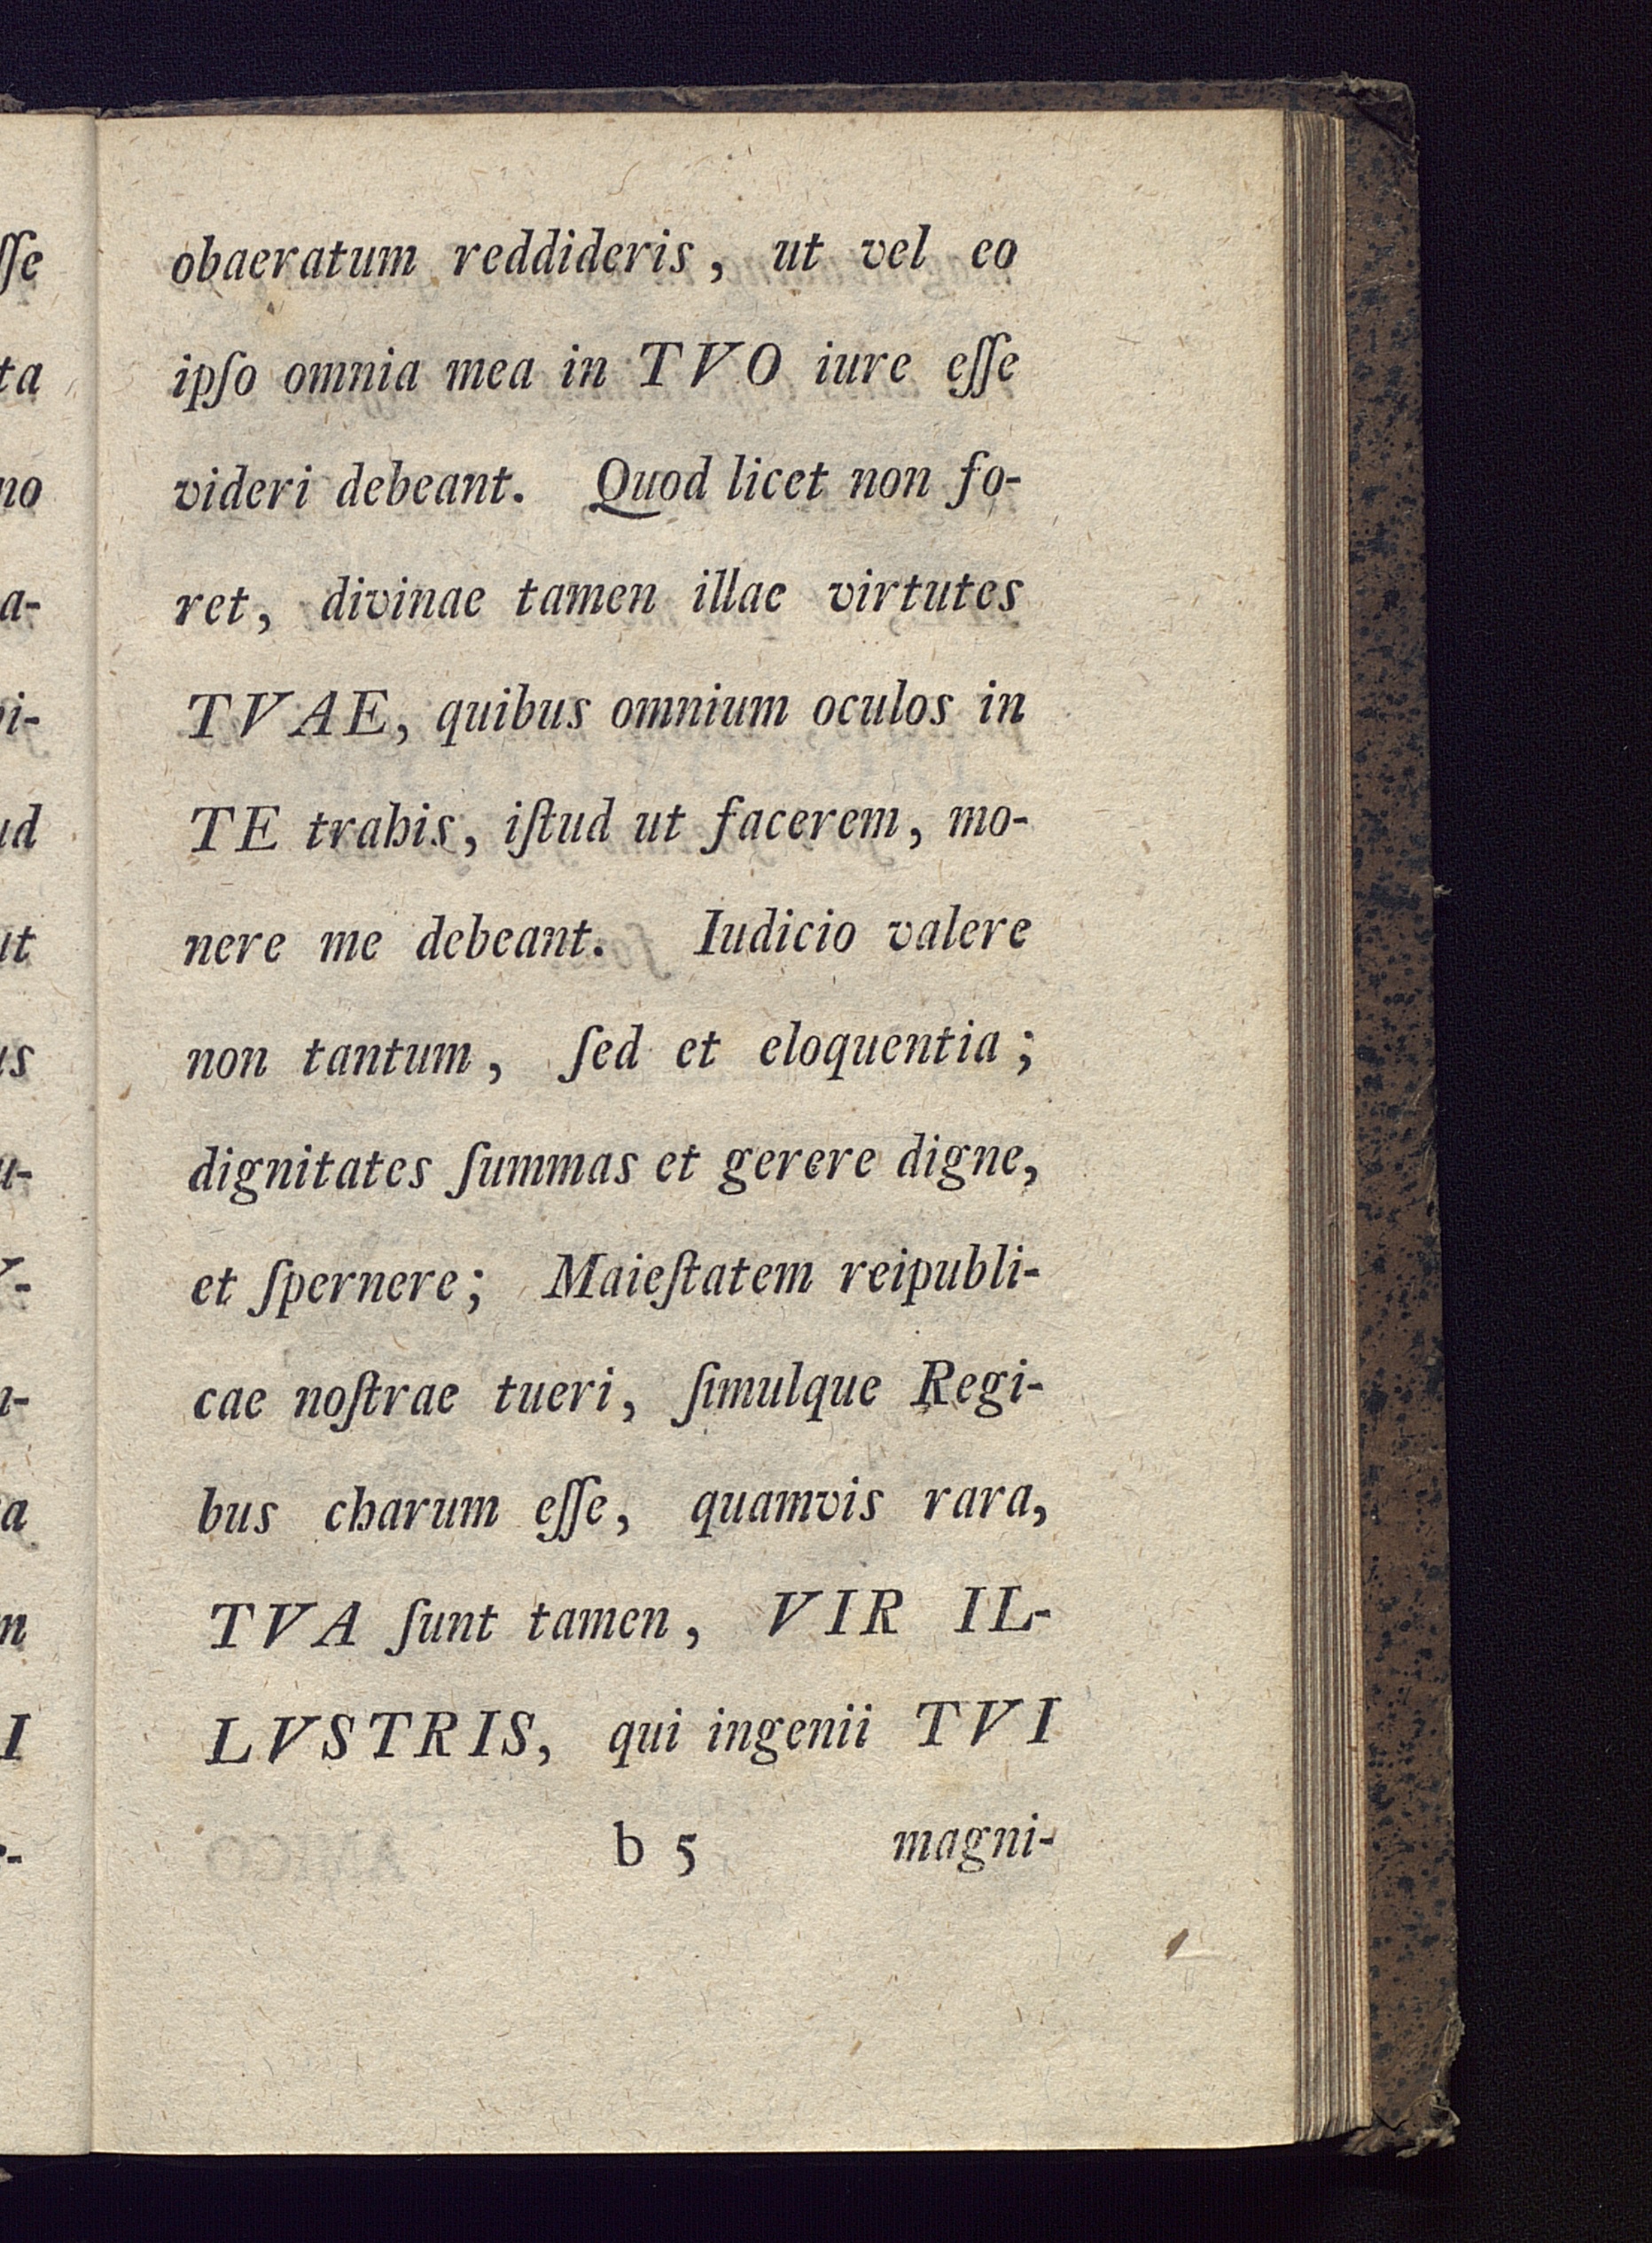 obaeratum reddideris, ut vel eo
ipſo omnia mea in TVO iure eſſe
videri debeant. Quod licet non fo-
ret, divinae tamen illae virtutes
TVAE, quibus omnium oculos in
TE trahis, iſtud ut facerem, mo-
nere me debeant. Iudicio valere
non tantum, ſed et eloquentia;
dignitates ſummas et gerere digne,
et ſpernere; Maieſtatem reipubli-
cae noſtrae tueri, ſimulque Regi-
bus charum eſſe, quamvis rara,
TVA ſunt tamen, VIR IL-
LVSTRIS, qui ingenii TVI
b 5 magni-